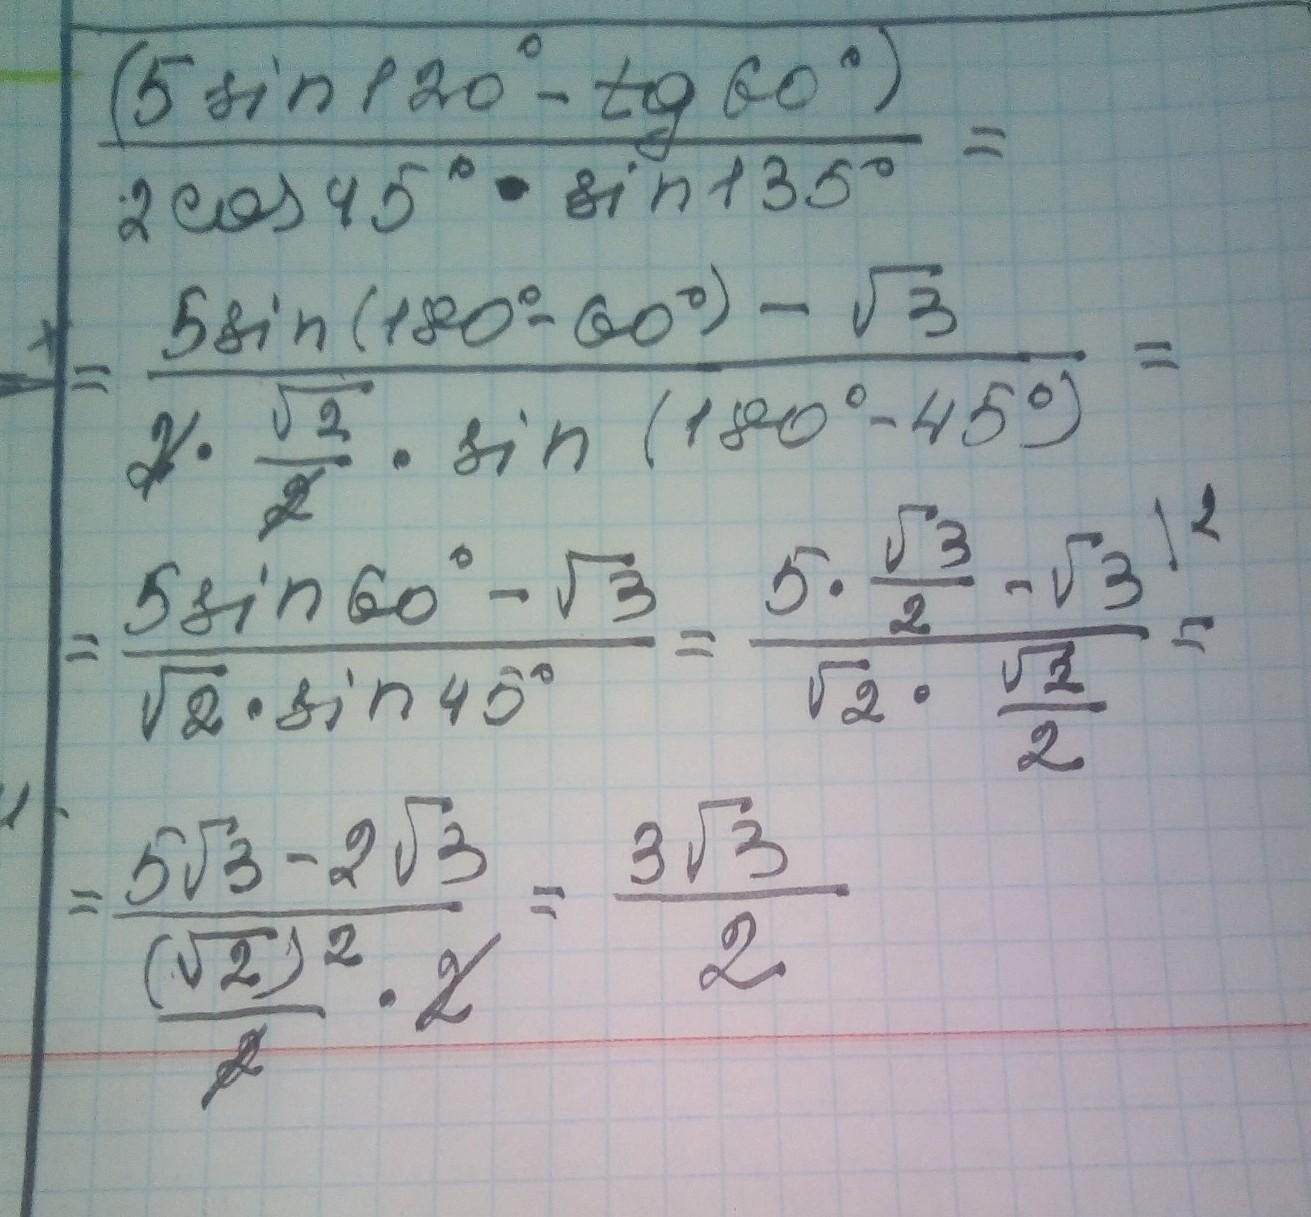 (5 sin 120° - tg 60°)
2 cos 45° • sin 135° =
= 5 sin (180° - 60°) - √3 =
2 · √2/2 · sin (180° - 45°)
= 5 sin 60° - √3 = 5 · √3/2 - √3 \2 =
√2 · sin 45° √2 · √2/2
= 5√3 - 2√3 = 3√3
(√2)²/2 · 2 2